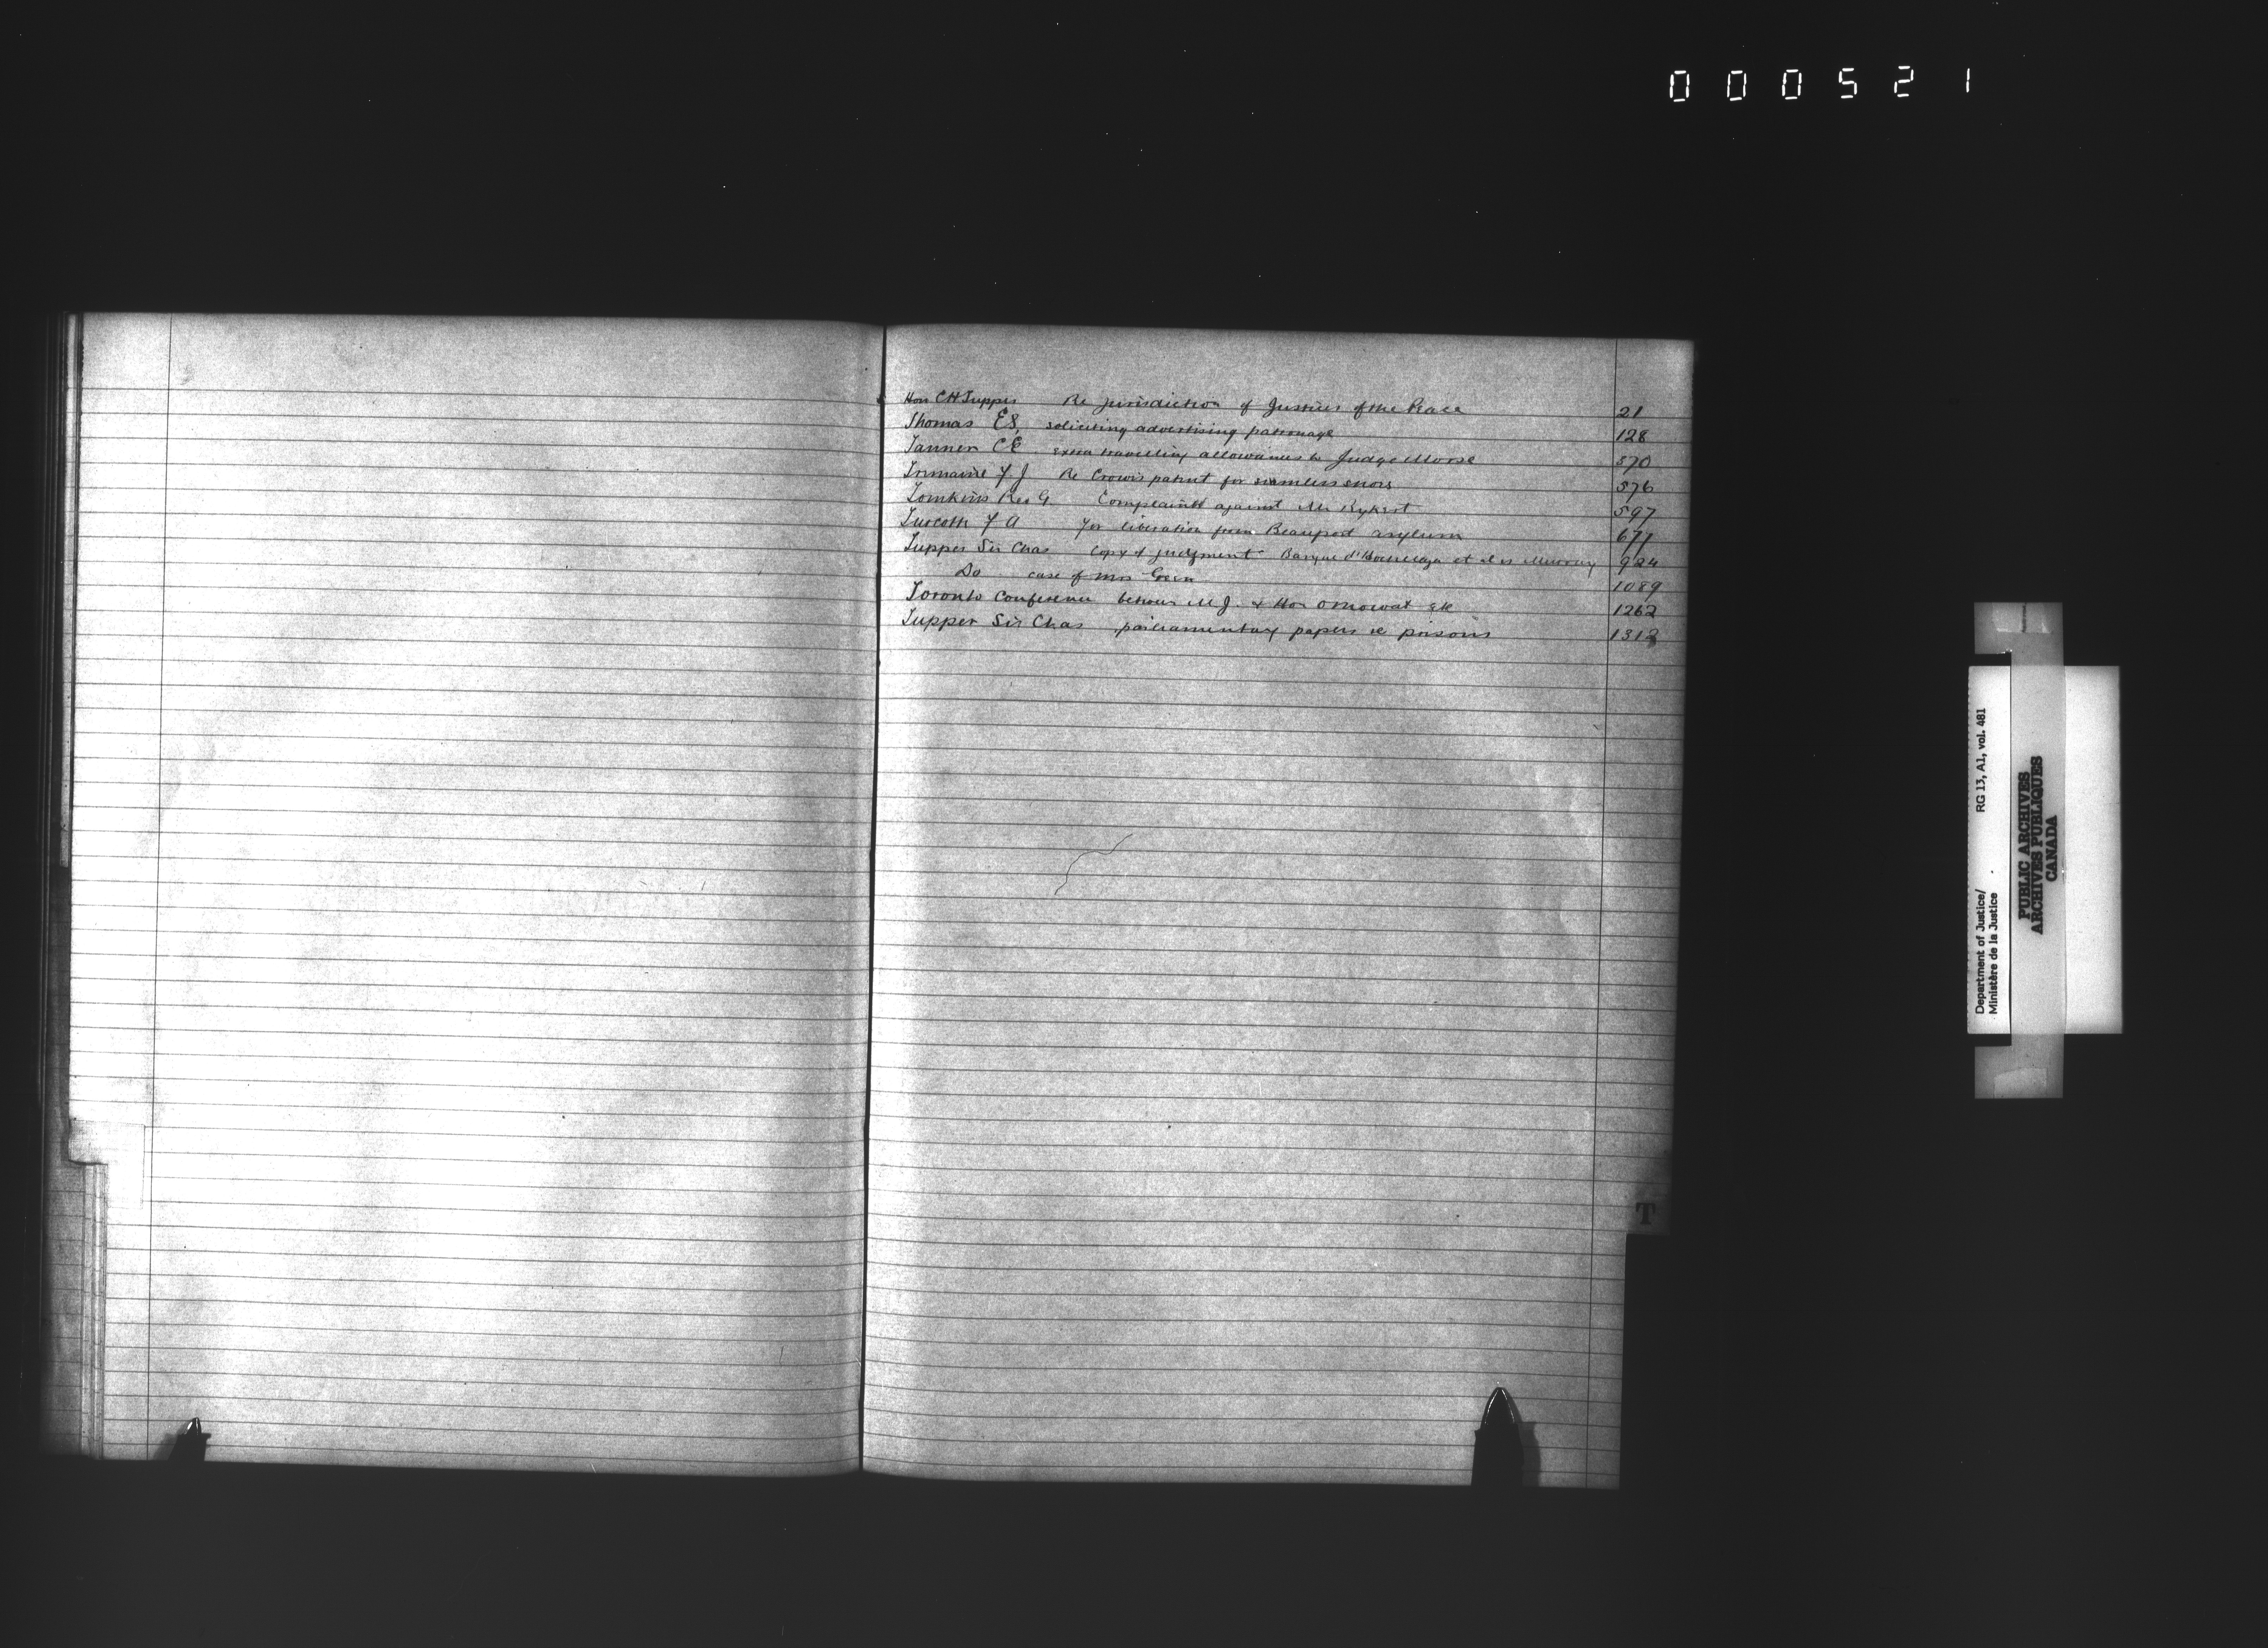 000521
Hon CH Tupper Re jurisdiction of Justices of the Peace 21
Thomas ES, soliciting advertising patronage 128
Tanner CE extra travelling allowances to Judge Morse 570
F. J Re patent for seamless 576
Tomkins Rev G. Complaint against Mr Rykert 597
Turcotte F A For liberation from Beauport asylum 671
Tupper Sir Chas copy of judgment Banque d'Hochelaga et al vs Murray 924
Do case of Mrs Green 1089
Toronto Conference between M.J. & Hon O Mowat 1262
Tupper Sir Chas parliamentary papers re poisons 1313
T
Department of Justice/ RG 13, A1, vol. 481
Ministère de la Justice
PUBLIC ARCHIVES
ARCHIVES PUBLIQUES
CANADA